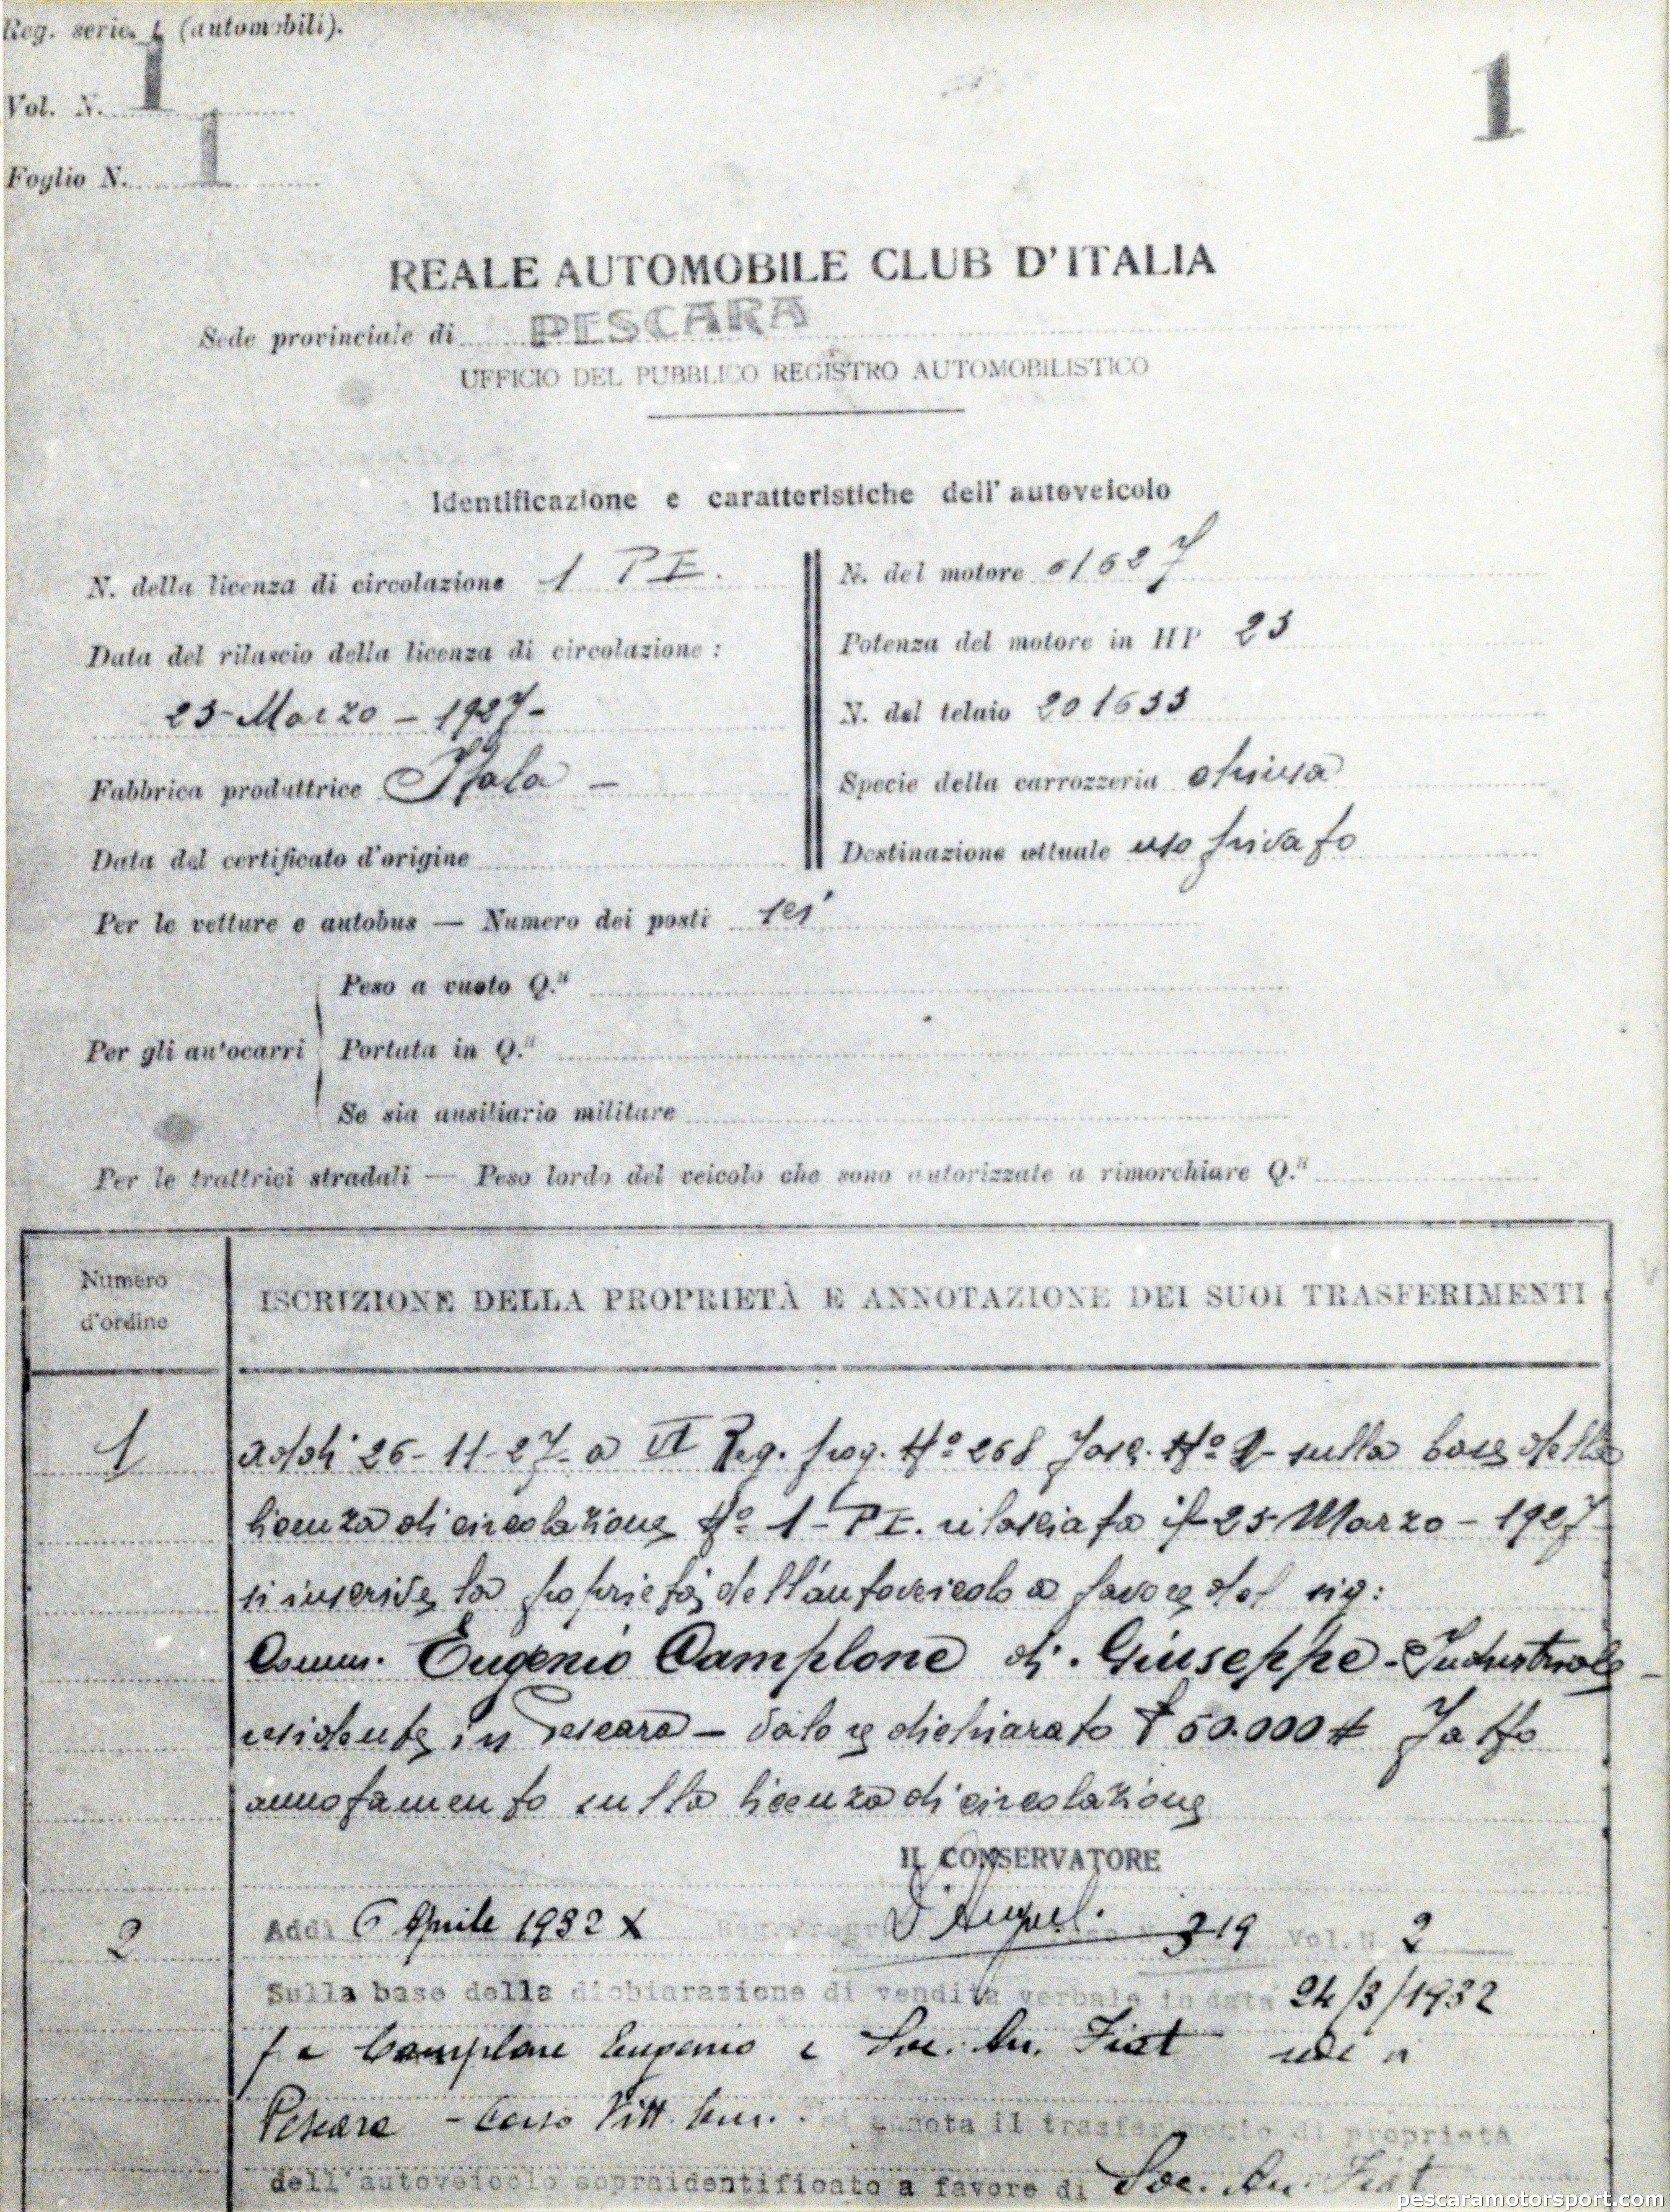 Reg. serie I (automobili).
Vol. N. 1
1
Foglio N. 1
REALE AUTOMOBILE CLUB D'ITALIA
Sede provinciale di PESCARA
UFFICIO DEL PUBBLICO REGISTRO AUTOMOBILISTICO
Identificazione e caratteristiche dell' autoveicolo
N. della licenza di circolazione 1 PE.
N. del motore 61627
Data del rilascio della licenza di circolazione :
Potenza del motore in HP 25
25 Marzo - 1927-
N. del telaio 201633
Fabbrica produttrice Itala -
Specie della carrozzeria chiusa
Data del certificato d'origine
Destinazione attuale uso privato
Per le vetture e autobus — Numero dei posti sei
Peso a vuoto Q.li
Per gli autocarri
Portata in Q.li
Se sia ausiliario militare
Per le trattrici stradali — Peso lordo del veicolo che sono autorizzate a rimorchiare Q.li
Numero d'ordine
ISCRIZIONE DELLA PROPRIETÀ E ANNOTAZIONE DEI SUOI TRASFERIMENTI
1
addi 26-11-27- a VI Reg. prog. Nº 268 Fasc. Nº 2- sulla base della
licenza di circolazione Nº 1 - PE. rilasciata il 25 Marzo - 1927
si inscrive la proprietà dell'autoveicolo a favore del sig:
Comm. Eugenio Camplone di Giuseppe - Industriale -
residente in Pescara - Valore dichiarato £ 50.000 # Fatto
annotamento sulla licenza di circolazione
IL CONSERVATORE
2
Addì 6 Aprile 1932 X Reg. Progr. 319 Vol. N. 2
Sulla base della dichiarazione di vendita verbale in data 24/3/1932
fra Camplone Eugenio e Soc. An. Fiat
Pescara - Corso Vitt. Em. si annota il trasferimento di proprietà
dell'autoveicolo sopraidentificato a favore di Soc. An. Fiat
pescaramotorsport.com